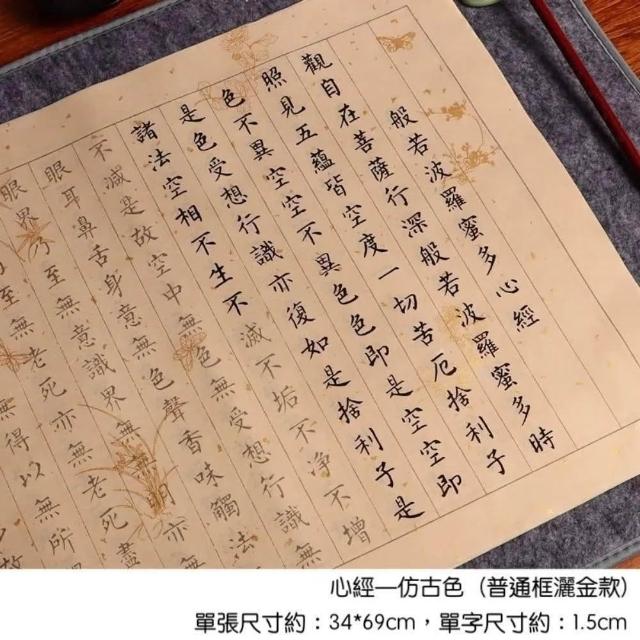 般若波羅蜜多心經
觀自在菩薩行深般若波羅蜜多時
照見五蘊皆空度一切苦厄捨利子
色不異空空不異色色即是空空即
是色受想行識亦復如是捨利子是
諸法空相不生不滅不垢不淨不增
不減是故空中無色無受想行識無
眼耳鼻舌身意無色聲香味觸法
眼界乃至無意識界無無明亦
至無老死亦無老死盡
得以無所
心經—仿古色（普通框灑金款）
單張尺寸約：34*69cm，單字尺寸約：1.5cm